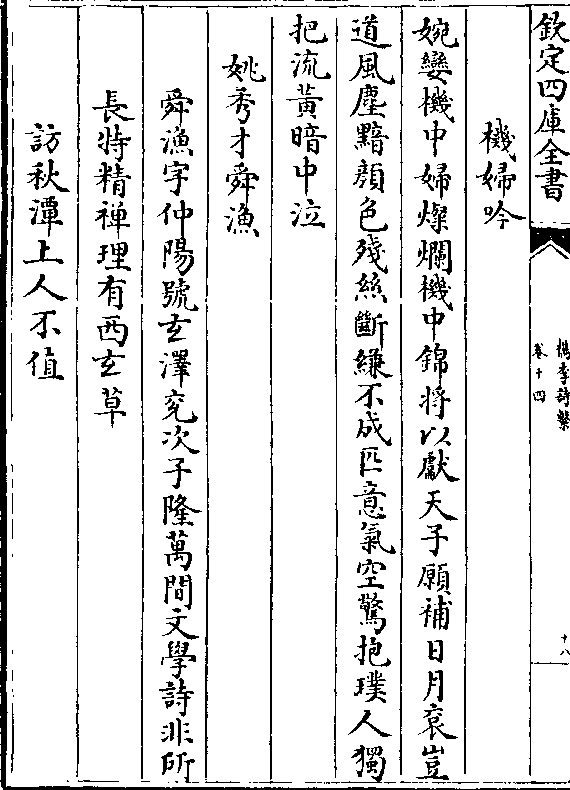 欽定四庫全書
檇李詩繫
卷十四
十八
機婦吟
婉孌機中婦燦爛機中錦將以獻天子願補日月衮豈
道風塵黯顔色殘絲斷縑不成匹意氣空驚抱璞人獨
把流黃暗中泣
姚秀才舜漁
舜漁字仲陽號玄澤兖次子隆萬間文學詩非所
長特精禪理有西玄草
訪秋潭上人不值